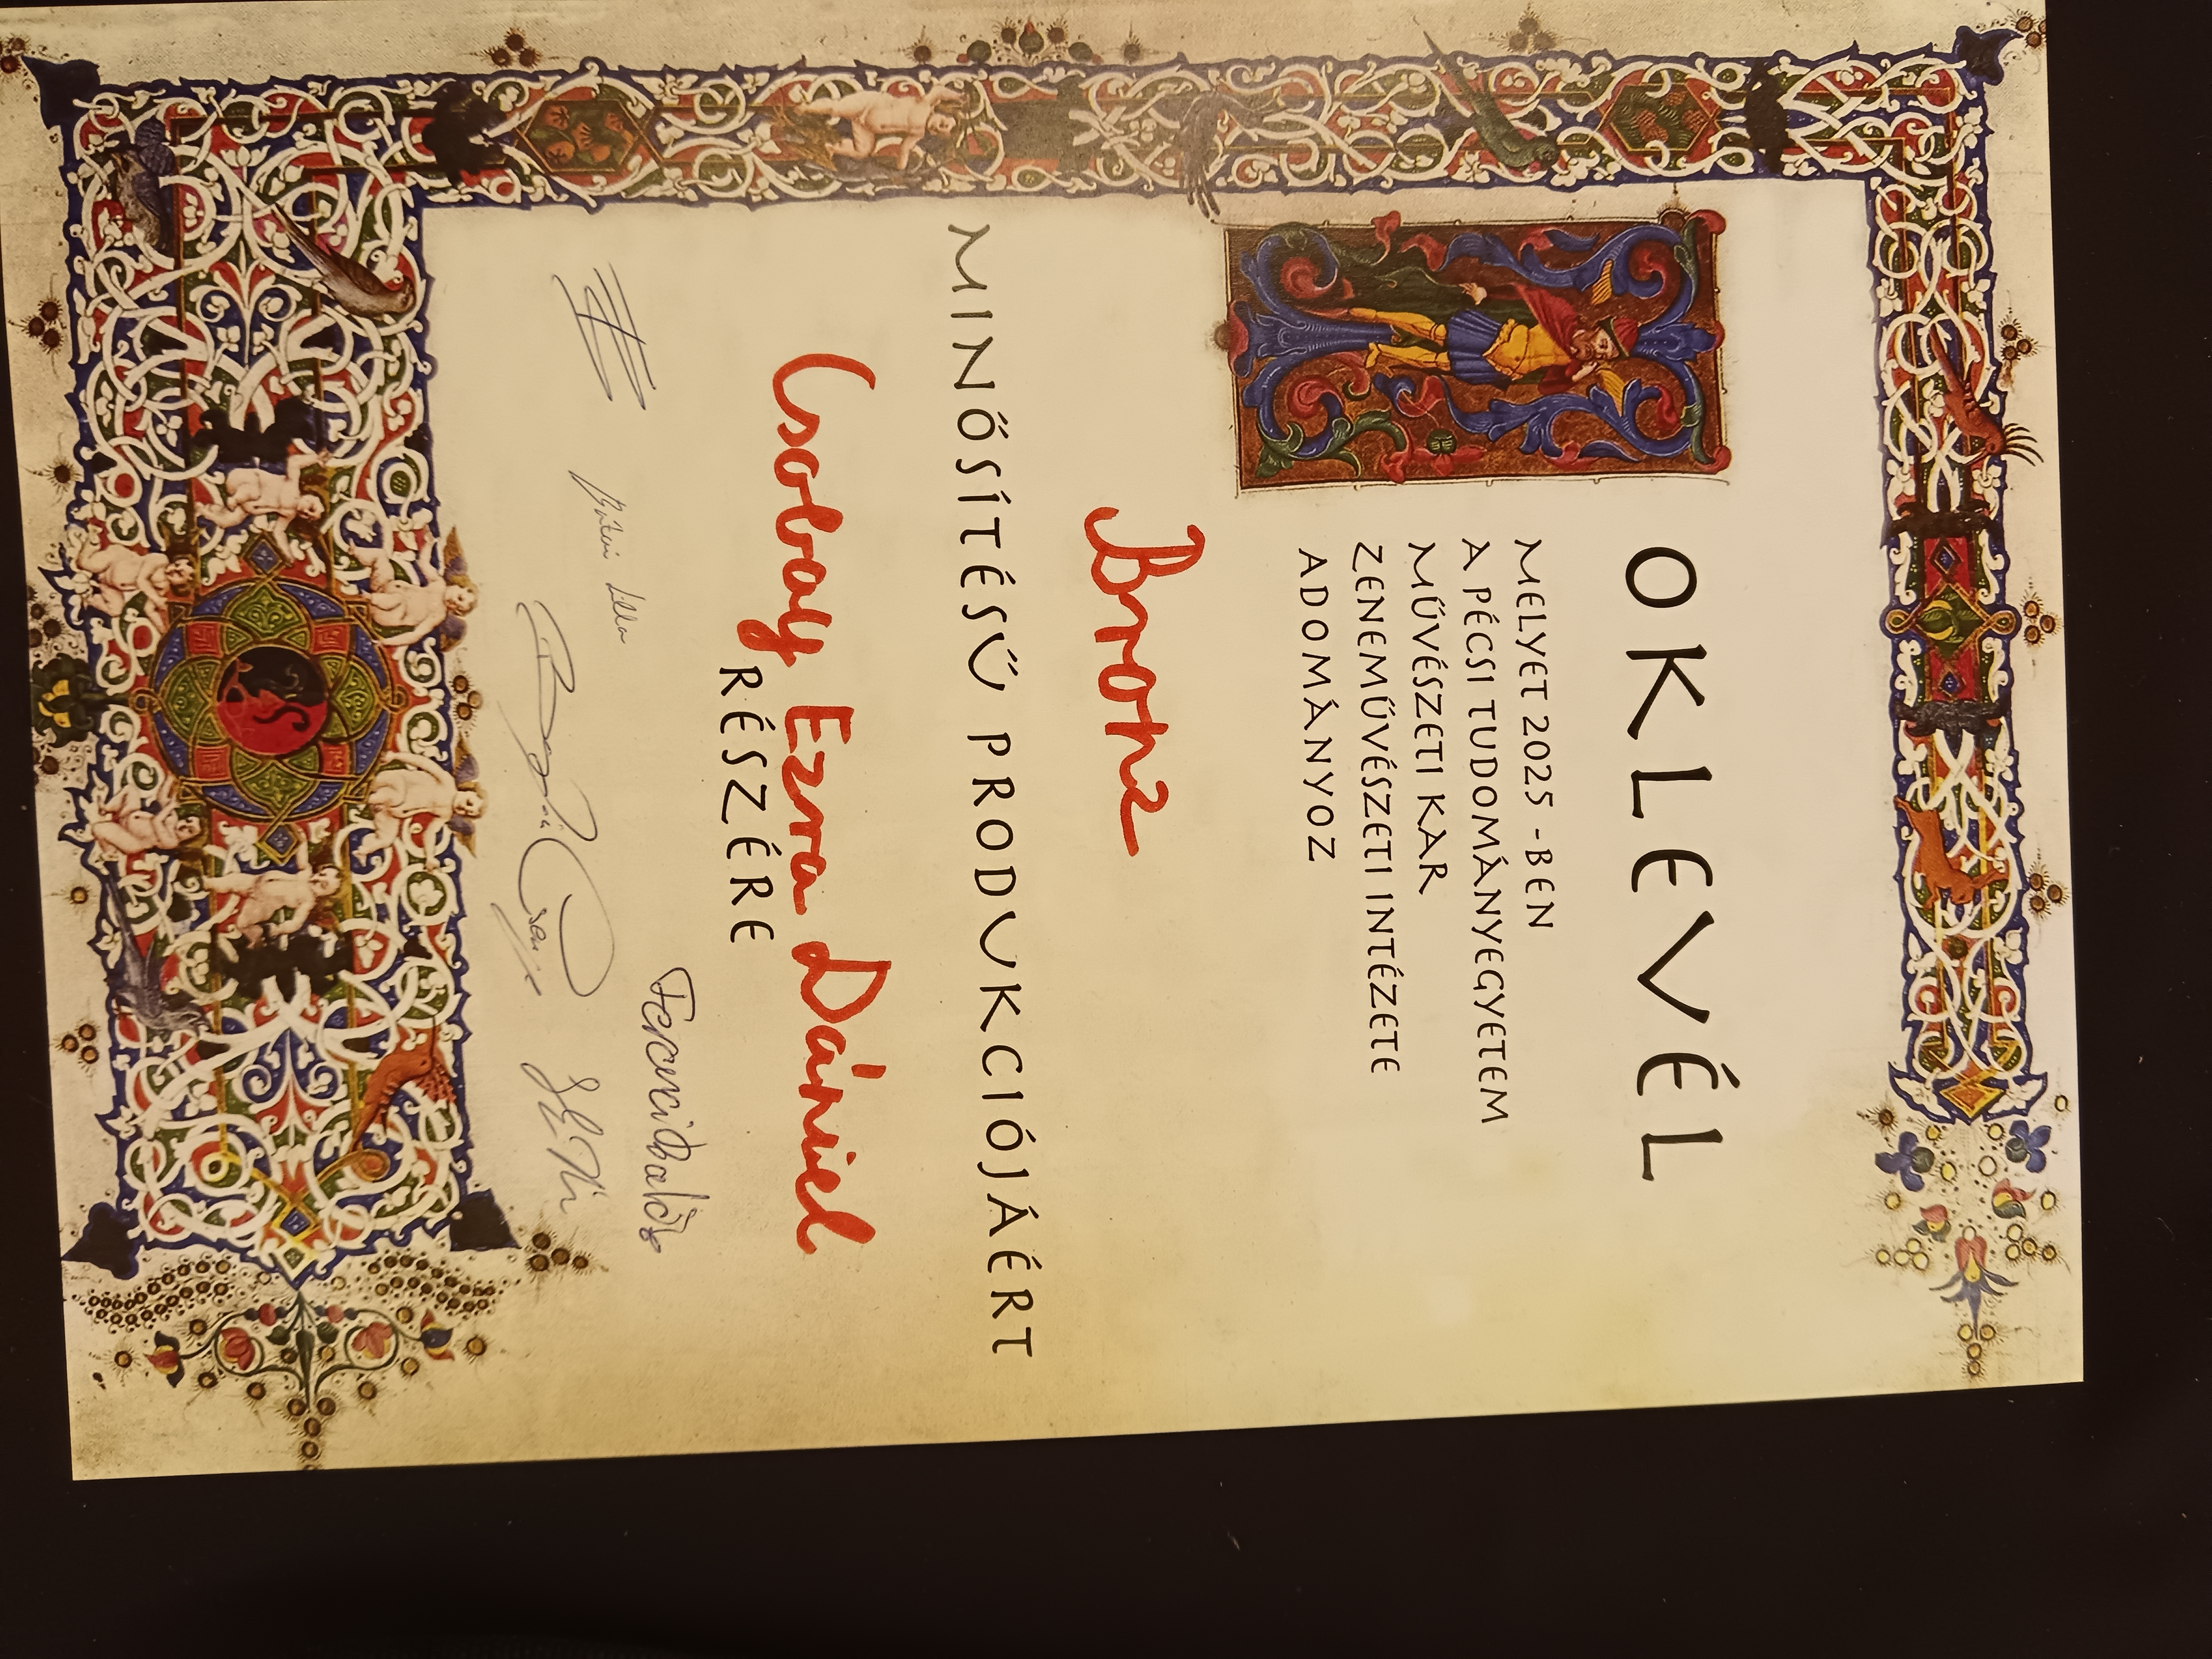 OKLEVÉL
MELYET 2025 -BEN
A PÉCSI TUDOMÁNYEGYETEM
MŰVÉSZETI KAR
ZENEMŰVÉSZETI INTÉZETE
ADOMÁNYOZ
Bronz
MINŐSÍTÉSŰ PRODUKCIÓJÁÉRT
Csolcay Ezra Dániel
RÉSZÉRE